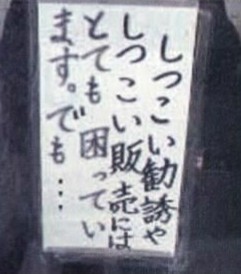 しつこい勧誘や
しつこい販売には
とても困ってい
ます。でも・・・